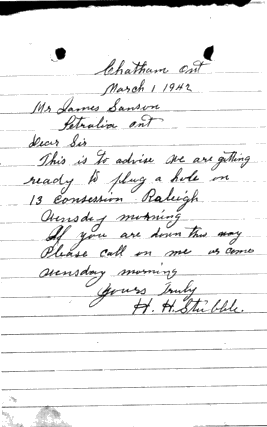 Chatham Ont
March 1 1942
Mr James Sanson
Petrolia Ont
Dear Sir
This is to advise we are getting
ready to plug a hole on
13 Consession Raleigh
Wensday morning
If you are down this way
Please call on me or come
Wensday morning
Yours Truly
H. H. Stubble.